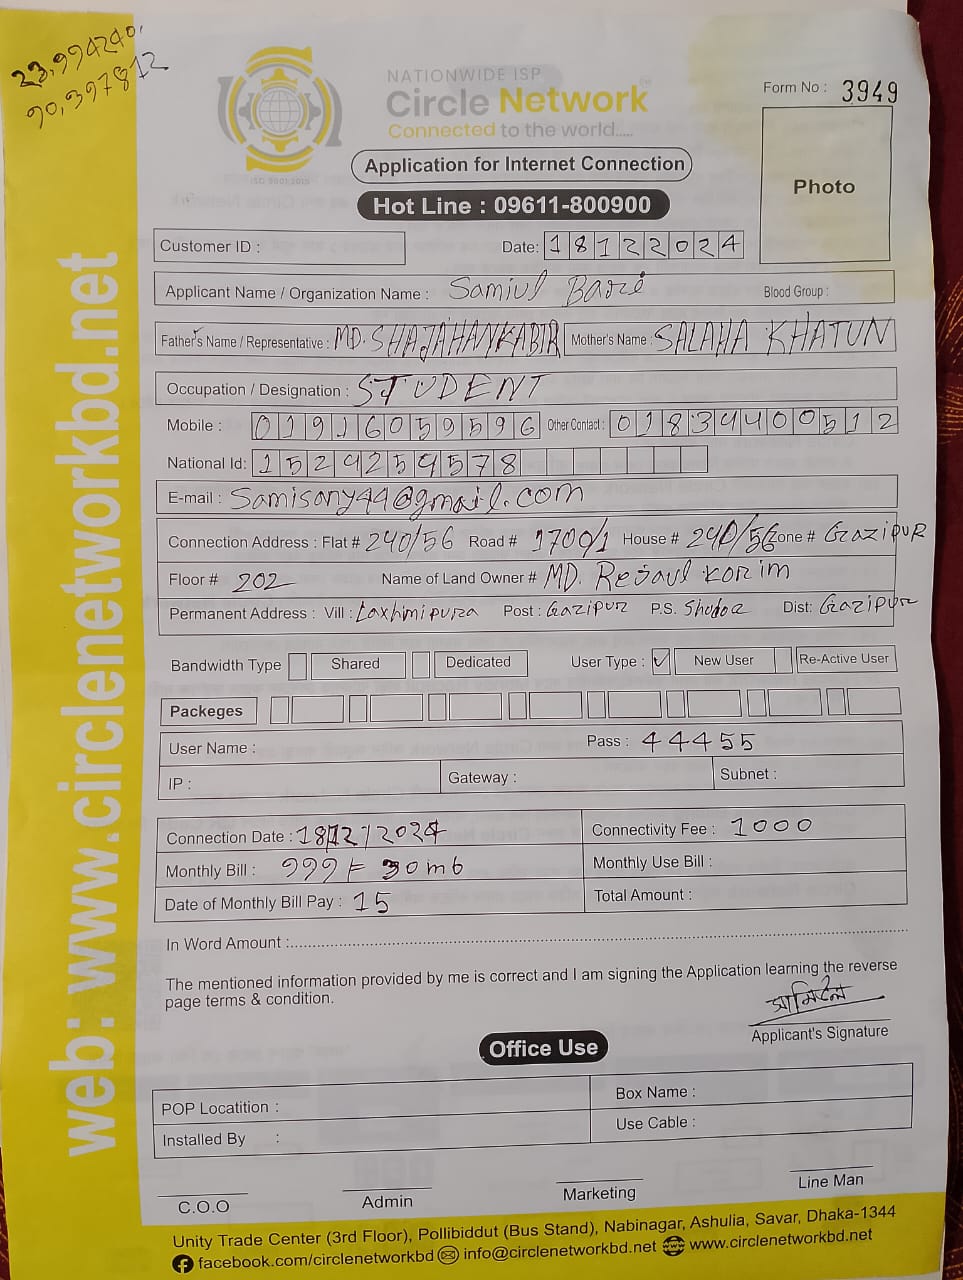 23.994240,
90.397812
NATIONWIDE ISP
Circle Network
Connected to the world.....
ISO 9001:2015
Form No : 3949
Photo
Application for Internet Connection
Hot Line : 09611-800900
Customer ID :
Date: 18122024
Applicant Name / Organization Name : Samiul Bari Blood Group :
Father's Name / Representative : MD. SHAJAHAN KABIR Mother's Name : SALAHA KHATUN
Occupation / Designation : STUDENT
Mobile : 01916059596 Other Contact : 01834400512
National Id: 1529259578
E-mail : Samisony44@gmail.com
Connection Address : Flat # 240/56 Road # 1700/1 House # 240/56 Zone # Gazipur
Floor # 202 Name of Land Owner # MD. Rejaul Korim
Permanent Address : Vill : Laxhmipura Post : Gazipur P.S. Dist: Gazipur
Bandwidth Type Shared Dedicated User Type : ✓ New User Re-Active User
Packeges
User Name : Pass : 44455
IP : Gateway : Subnet :
Connection Date : 18/12/2024 Connectivity Fee : 1000
Monthly Bill : 999 30 mb Monthly Use Bill :
Date of Monthly Bill Pay : 15 Total Amount :
In Word Amount :..........
The mentioned information provided by me is correct and I am signing the Application learning the reverse
page terms & condition.
Applicant's Signature
Office Use
POP Locatition : Box Name :
Installed By : Use Cable :
C.O.O Admin Marketing Line Man
Unity Trade Center (3rd Floor), Pollibiddut (Bus Stand), Nabinagar, Ashulia, Savar, Dhaka-1344
facebook.com/circlenetworkbd info@circlenetworkbd.net www.circlenetworkbd.net
web: www.circlenetworkbd.net